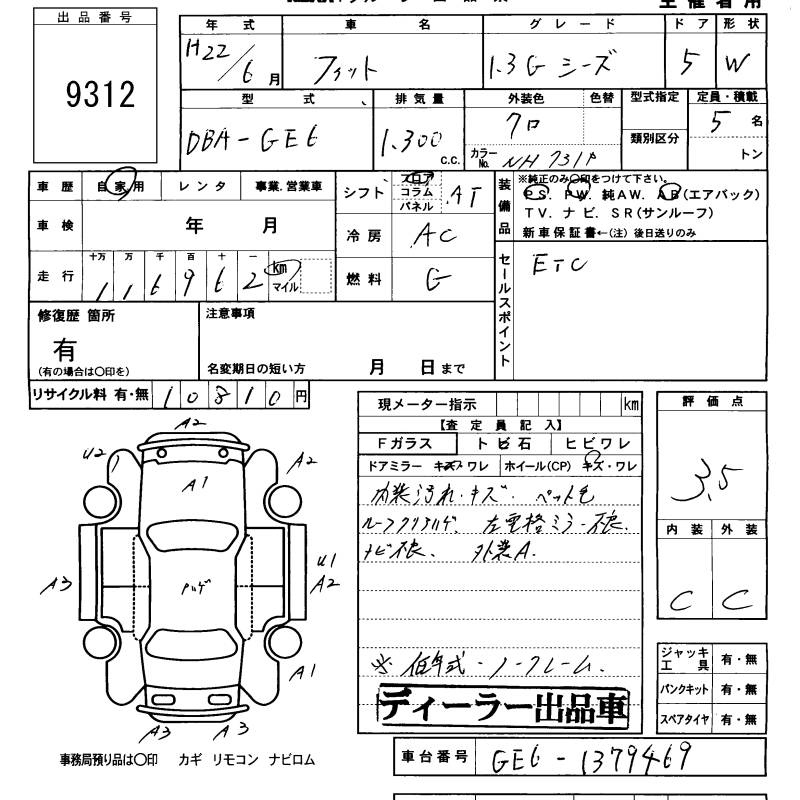 主催者用
出品番号
9312
年式 車名 グレード ドア 形状
H22/6月 フィット 1.3G シーズ 5 W
型式 排気量 外装色 色替 型式指定 定員・積載
DBA-GE6 1.300 c.c. クロ 類別区分 5名
カラーNo. NH731P トン
車歴 自家用 レンタ 事業.営業車
シフト フロア コラム パネル AT
装備品 ※純正のみ〇印をつけて下さい。
PS. PW. 純AW. AB(エアバック)
TV. ナビ. SR(サンルーフ)
新車保証書←(注)後日送りのみ
車検 年 月
冷房 AC
走行 十万 万 千 百 十 一
116962 km マイル
燃料 G
セールスポイント
ETC
修復歴 箇所
有
(有の場合は〇印を)
注意事項
名変期日の短い方 月 日まで
リサイクル料 有・無 10810円
現メーター指示 km
【査定員記入】
Fガラス トビ石 ヒビワレ
ドアミラー キズ・ワレ ホイール(CP) キズ・ワレ
内装汚れ・キズ. ペット毛
ルーフクリアハゲ. 左電格ミラー不良.
ナビ不良. 外装A.
※低年式・ノークレーム.
ディーラー出品車
評価点
3.5
内装 外装
C C
ジャッキ工具 有・無
パンクキット 有・無
スペアタイヤ 有・無
A2
U2
A2
A1
A3
ハゲ
U1
A2
A1
A3
A3
事務局預り品は〇印 カギ リモコン ナビロム
車台番号 GE6-1379469